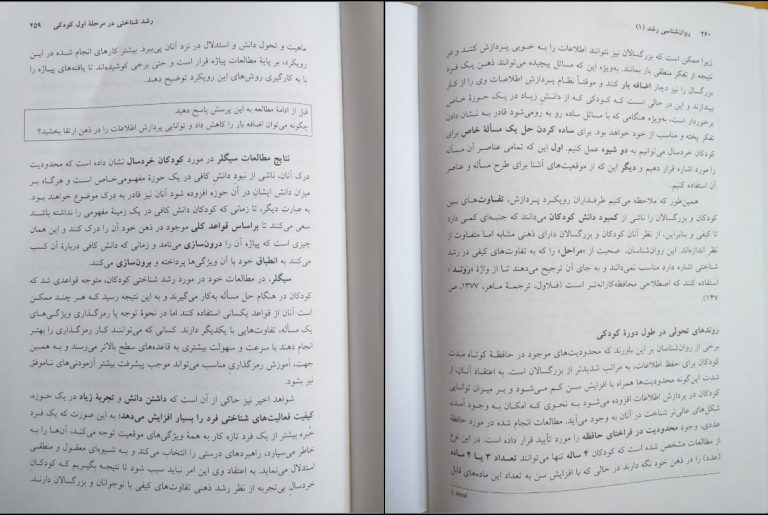 رشد شناختی در مرحلهٔ اول کودکی ۲۵۹
ماهیت و تحول دانش و استدلال در نزد آنان پی‌ببرد. بیشتر کارهای انجام شده در این
رویکرد، بر پایهٔ مطالعات پیاژه قرار است و حتی برخی کوشیده‌اند تا یافته‌های پیاژه را
با به کارگیری روش‌های این رویکرد توضیح دهند.
قبل از ادامهٔ مطالعه به این پرسش پاسخ دهید
چگونه می‌توان اضافه بار را کاهش داد و توانایی پردازش اطلاعات را در ذهن ارتقا بخشید؟
نتایج مطالعات سیگلر در مورد کودکان خردسال نشان داده است که محدودیت
درک آنان، ناشی از نبود دانش کافی در یک حوزهٔ مفهومی‌خاص است و هرگاه بر
میزان دانش ایشان در آن حوزه افزوده شود آنان نیز قادر به درک موضوع خواهند بود.
به عبارت دیگر، تا زمانی که کودکان دانش کافی در یک زمینهٔ مفهومی را نداشته باشند
سعی می‌کنند تا براساس قواعد کلی موجود در ذهن خود آن را درک کنند و این همان
چیزی است که پیاژه آن را درون‌سازی می‌نامد و زمانی که دانش کافی دربارهٔ آن کسب
می‌کنند به انطباق خود با آن ویژگی‌ها پرداخته و برون‌سازی می‌کنند.
سیگلر، در مطالعات خود در مورد رشد شناختی کودکان، متوجه قواعدی شد که
کودکان در هنگام حل مسأله به‌کار می‌گیرند و به این نتیجه رسید که هر چند ممکن
است آنان از قواعد یکسانی استفاده کنند اما در نحوهٔ توجه یا رمزگذاری ویژگی‌های
یک مسأله، تفاوت‌هایی با یکدیگر دارند. کسانی که می‌توانند کار رمزگذاری را بهتر
انجام دهند با سرعت و سهولت بیشتری به قاعده‌های سطح بالاتر می‌رسند و به همین
جهت، آموزش رمزگذاری مناسب می‌تواند موجب پیشرفت بیشتر آزمودنی‌های ناموفق
نیز بشود.
شواهد اخیر نیز حاکی از آن است که داشتن دانش و تجربهٔ زیاد در یک حوزه،
کیفیت فعالیت‌های شناختی فرد را بسیار افزایش می‌دهد؛ به این صورت که یک فرد
خُبره بیشتر از یک فرد تازه کار به همهٔ ویژگی‌های موقعیت توجه می‌کند، آن‌ها را به
خاطر می‌سپارد، راهبردهای درستی را انتخاب می‌کند و به شیوه‌ای معقول و منطقی
استدلال می‌نماید. به اعتقاد وی این امر نباید سبب شود تا نتیجه بگیریم که کودکان
خردسال بی‌تجربه از نظر رشد ذهنی تفاوت‌های کیفی با نوجوانان و بزرگسالان دارند.
۲۶۰ روان‌شناسی رشد (۱)
زیرا ممکن است که بزرگسالان نیز نتوانند اطلاعات را به خوبی پردازش کنند و در
نتیجه از تفکر منطقی باز بمانند. به‌ویژه این که مسائل پیچیده می‌توانند ذهن یک فرد
بزرگسال را نیز دچار اضافه بار کنند و موقتاً نظام پردازش اطلاعات وی را از کار
بیندازند و این در حالی است که کودکی که از دانش زیاد در یک حوزهٔ خاص
برخوردار است، به‌ویژه هنگامی که با مسائل ساده رو به رومی‌شود قادر به نشان دادن
تفکر پخته و مناسب از خود خواهد بود. برای ساده کردن حل یک مسألهٔ خاص برای
کودکان خردسال می‌توانیم به دو شیوه عمل کنیم. اول این که تمامی عناصر آن مسأله
را مورد اشاره قرار دهیم و دیگر این که از موقعیت‌های آشنا برای طرح مسأله و عناصر
آن استفاده کنیم.
همین‌طور که ملاحظه می‌کنیم طرفداران رویکرد پردازش، تفاوت‌های بین
کودکان و بزرگسالان را ناشی از کمبود دانش کودکان می‌دانند که جنبه‌ای کمی دارد
تا کیفی و بنابراین، از نظر آنان کودکان و بزرگسالان دارای ذهنی مشابه اما متفاوت از
نظر اندازه‌اند. این روان‌شناسان. صحبت از «مراحل» را که به تفاوت‌های کیفی در رشد
شناختی اشاره دارد مناسب نمی‌دانند و به جای آن ترجیح می‌دهند تا از واژهٔ «رَوَند»¹
استفاده کنند که اصطلاحی محافظه‌کارانه‌تر است (فلاول، ترجمهٔ ماهر، ۱۳۷۷، ص
۱۴۷).
روندهای تحولی در طول دورهٔ کودکی
برخی از روان‌شناسان بر این باورند که محدودیت‌های موجود در حافظهٔ کوتاه مدت
کودکان برای حفظ اطلاعات، به مراتب شدیدتر از بزرگسالان است. به اعتقاد آنان، از
شدت این‌گونه محدودیت‌ها همراه با افزایش سن کم می‌شود و بر میزان توانایی
کودکان در پردازش اطلاعات افزوده می‌شود به نحوی که امکان به وجود آمدن
شکل‌های عالی‌تر شناخت در آنان به وجود می‌آید. مطالعات انجام شده در مورد حافظهٔ
عددی، وجود محدودیت در فراخنای حافظه را مورد تأیید قرار داده است. در این نوع
از مطالعات مشخص شده است که کودکان ۴ ساله تنها می‌توانند تعداد ۳ یا ۴ ماده
(عدد) را در ذهن خود نگه دارند در حالی که با افزایش سن به تعداد این ماده‌های قابل
1. trend